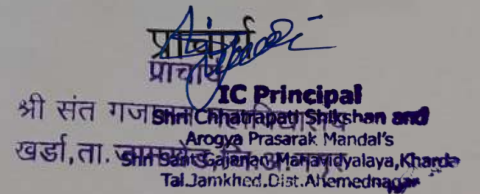 प्राचार्य
प्राचार्य
IC Principal
श्री संत गजानन
Shri Chhatrapati Shikshan and
Arogya Prasarak Mandal's
खर्डा, ता.
Shri Sant Gajanan Mahavidyalaya, Kharda
Tal.Jamkhed, Dist.Ahemednagar